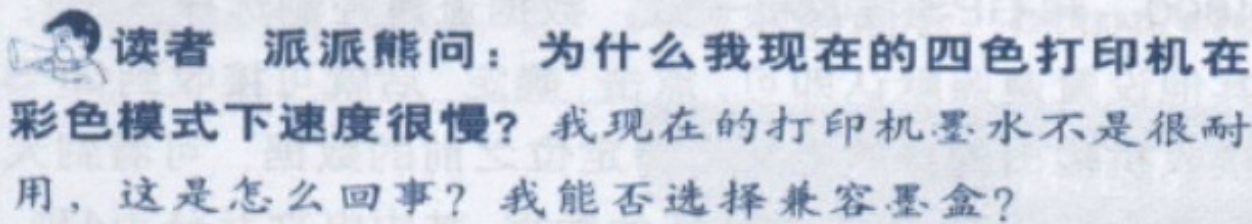 读者 派派熊问：为什么我现在的四色打印机在
彩色模式下速度很慢？我现在的打印机墨水不是很耐
用，这是怎么回事？我能否选择兼容墨盒？